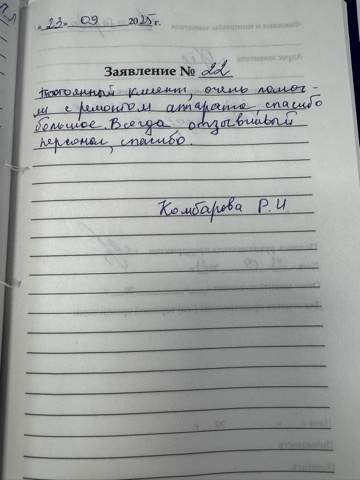 «23» 09 2025 г.
Заявление № 22
Постоянный клиент, очень помог-
ли с ремонтом апарата, спасибо
большое. Всегда отзывчивый
персонал, спасибо.
Комбарова Р.И